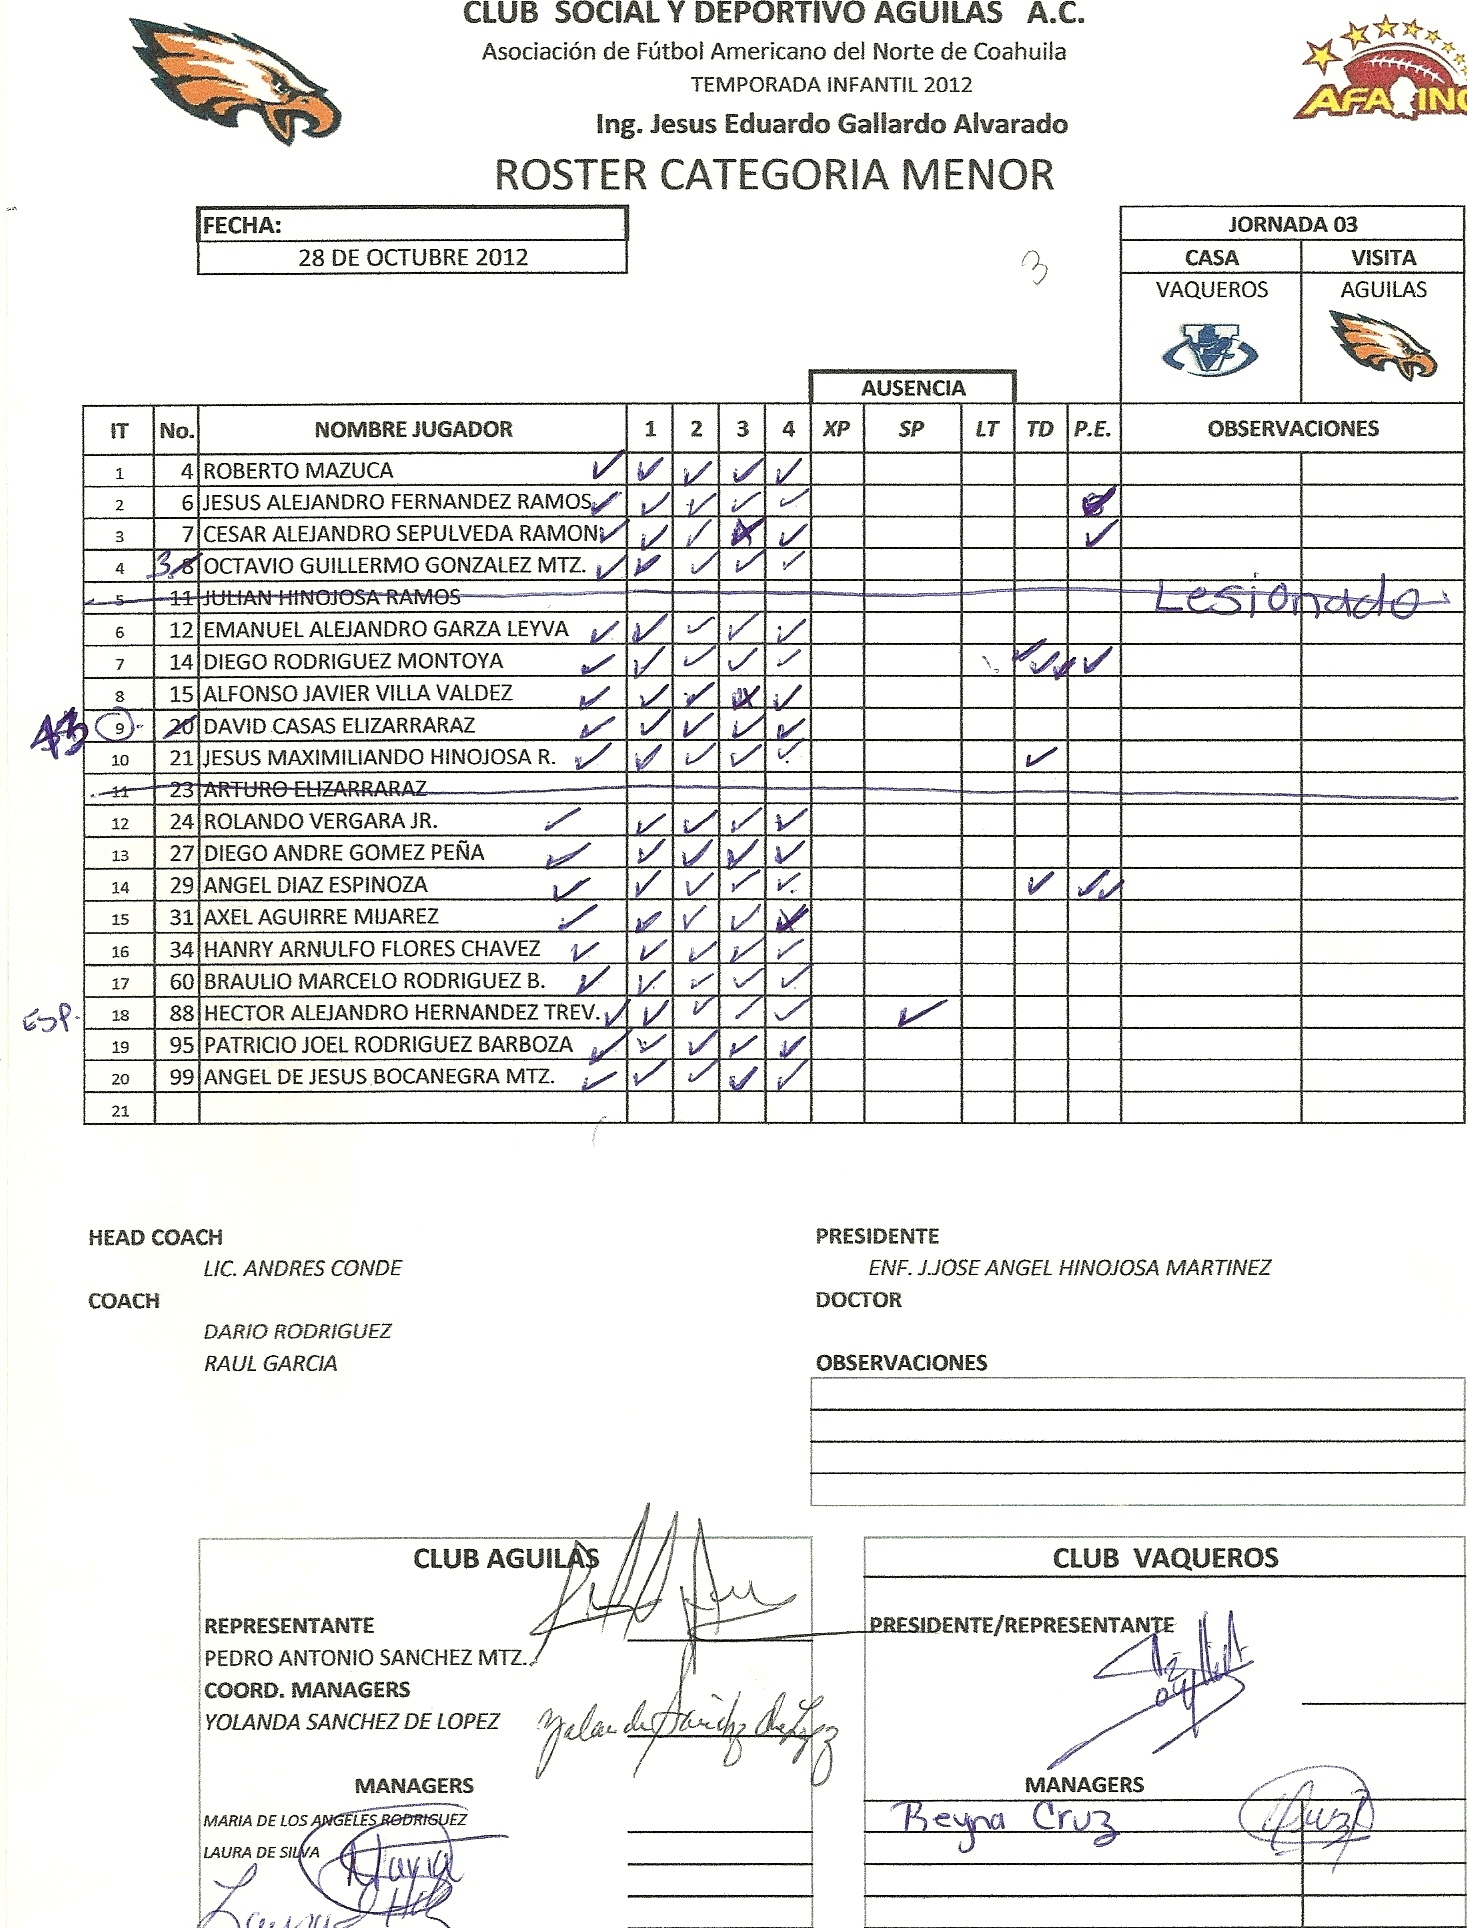 CLUB SOCIAL Y DEPORTIVO AGUILAS A.C.
Asociación de Fútbol Americano del Norte de Coahuila
TEMPORADA INFANTIL 2012
Ing. Jesus Eduardo Gallardo Alvarado
ROSTER CATEGORIA MENOR
FECHA:
28 DE OCTUBRE 2012
3
JORNADA 03
CASA VISITA
VAQUEROS AGUILAS
AUSENCIA
IT No. NOMBRE JUGADOR 1 2 3 4 XP SP LT TD P.E. OBSERVACIONES
1 4 ROBERTO MAZUCA
2 6 JESUS ALEJANDRO FERNANDEZ RAMOS
3 7 CESAR ALEJANDRO SEPULVEDA RAMON
4 3 8 OCTAVIO GUILLERMO GONZALEZ MTZ.
5 11 JULIAN HINOJOSA RAMOS Lesionado
6 12 EMANUEL ALEJANDRO GARZA LEYVA
7 14 DIEGO RODRIGUEZ MONTOYA
8 15 ALFONSO JAVIER VILLA VALDEZ
43 9 20 DAVID CASAS ELIZARRARAZ
10 21 JESUS MAXIMILIANDO HINOJOSA R.
11 23 ARTURO ELIZARRARAZ
12 24 ROLANDO VERGARA JR.
13 27 DIEGO ANDRE GOMEZ PEÑA
14 29 ANGEL DIAZ ESPINOZA
15 31 AXEL AGUIRRE MIJAREZ
16 34 HANRY ARNULFO FLORES CHAVEZ
17 60 BRAULIO MARCELO RODRIGUEZ B.
ESP. 18 88 HECTOR ALEJANDRO HERNANDEZ TREV.
19 95 PATRICIO JOEL RODRIGUEZ BARBOZA
20 99 ANGEL DE JESUS BOCANEGRA MTZ.
21
HEAD COACH PRESIDENTE
LIC. ANDRES CONDE ENF. J.JOSE ANGEL HINOJOSA MARTINEZ
COACH DOCTOR
DARIO RODRIGUEZ
RAUL GARCIA OBSERVACIONES
CLUB AGUILAS CLUB VAQUEROS
REPRESENTANTE PRESIDENTE/REPRESENTANTE
PEDRO ANTONIO SANCHEZ MTZ.
COORD. MANAGERS
YOLANDA SANCHEZ DE LOPEZ Yolanda Sanchez de Lopez
MANAGERS MANAGERS
MARIA DE LOS ANGELES RODRIGUEZ Reyna Cruz
LAURA DE SILVA